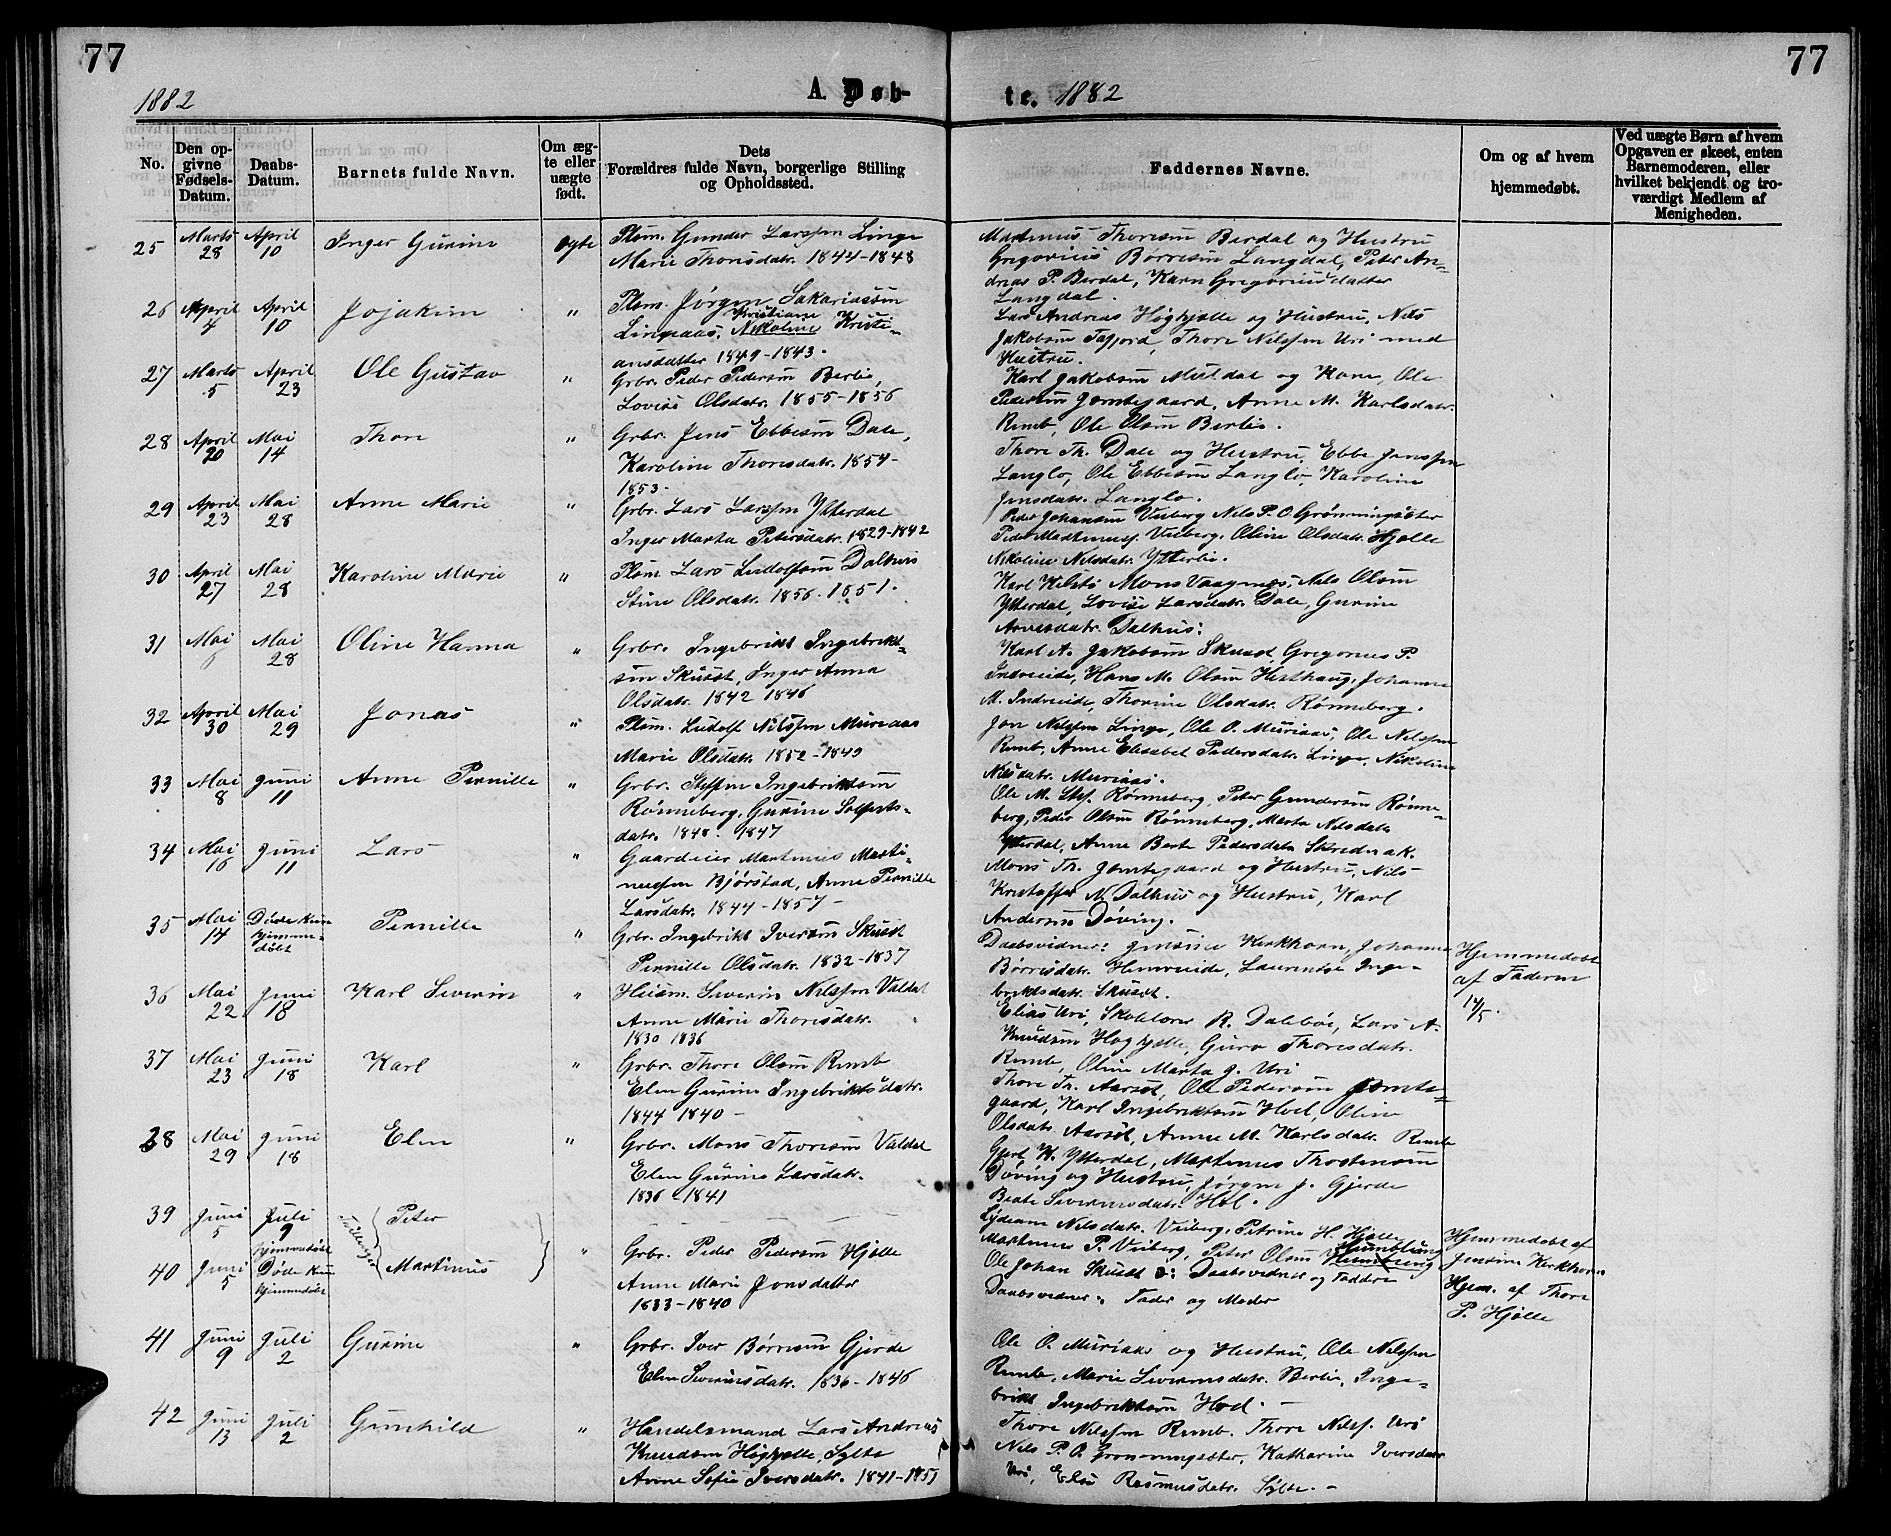 77
77
1882
A. Døb-
te. 1882
No.
Den op-
givne
Fødsels-
Datum.
Daabs-
Datum.
Barnets fulde Navn.
Om æg-
te eller
uægte
født.
Dets
Forældres fulde Navn, borgerlige Stilling
og Opholdssted.
Faddernes Navne.
Om og af hvem
hjemmedøbt.
Ved uægte Børn af hvem
Opgaven er skeet, enten
Barnemoderen, eller
hvilket bekjendt og tro-
værdigt Medlem af
Menigheden.
25 Marts 28 April 10 Inger Gurine ægte
Plsm. Gunder Larssen Linge
Marie Thoresdatr. 1844-1848
Martinus Thoresen Berdal og Hustru
Gregorius Børresen Langdal, Peter An=
dreas P. Berdal, Karn Gregoriusdatter
Langdal.
26 April 4 April 10 Jojakim "
Plsm. Jørgen Sakariassen
Kristiane
Lingaas, Nikoline Kristi-
ansdatter 1849-1843.
Lars Andreas Høghjelle og Hustru, Nils
Jakobsen Tafjord, Thore Nilssen Uri med
Hustru.
27 Marts 5 April 23 Ole Gustav "
Grbr. Peder Pedersen Berlie,
Lovise Olsdatr. 1855-1856
Karl Jakobsen Muldal og Kone, Ole
Pedersen Jemtegaard, Anne M. Karlsdatr.
Remb, Ole Olsen Berlie.
28 April 20 Mai 14 Thore "
Grbr. Jens Ebbesen Dale,
Karoline Thoresdatr. 1854-
1853-
Thore Th. Dale og Hustru, Ebbe Jenssen
Langlo, Ole Ebbesen Langlo, Karoline
Jensdatr. Langlo.
29 April 23 Mai 28 Anne Marie "
Grbr. Lars Larssen Ytterdal
Inger Marta Petersdatr. 1829-1842
Peder Johansen Veiberg Nils P. O. Grønningsæter
Peder Martinuss. Veiberg, Oline Olsdatr. Hjelle
Nikoline Nilsdatr. Ytterlie.
30 April 27 Mai 28 Karoline Marie "
Plsm. Lars Ludolfsen Dalhus
Stine Olsdatr. 1856-1851.
Karl Kilsti Mons Vaagnes, Nils Olsen
Ytterdal, Lovise Larsdatr. Dale, Gurine
Arnesdatr. Dalhus.
31 Mai Mai 28 Oline Hanna "
Grbr. Ingebrikt Ingebrikt=
sen Skuset, Inger Anna
Olsdatr. 1842 1846
Karl A. Jakobsen Skuset, Gregorius P.
Indreeide, Hans M. Olsen Hesthaug, Johanne
M. Indreeide, Thorine Olsdatr. Rønneberg.
32 April 30 Mai 29 Jonas "
Plsm. Ludolf Nilssen Muriaas
Marie Olsdatr. 1852-1849
Jon Nilssen Linge, Ole O. Muriaas, Ole Nilssen
Remb, Anne Elisabet Pedersdatr. Linge, Nikoline
Nilsdatr. Muriaas.
33 Mai 8 Juni 11 Anne Pernille "
Grbr. Steffen Ingebriktsen
Rønneberg, Gurine
datr. 1848. 1847
Ole M. Stef. Rønneberg, Peter Gundersen Rønne=
berg, Peder Olsen Rønneberg, Marta Nilsdatr.
Ytterdal, Anne Berte Pedersdatr.
34 Mai 16 Juni 11 Lars "
Gaardeier Martinus Marti-
nussen Bjørstad, Anne Pernille
Larsdatr. 1844-1857-
Mons Th. Jemtegaard og Hustru, Nils
Kristoffer N. Dalhus og Hustru, Karl
Andersen Døving.
35 Mai 14 Døde kun
hjemme-
døbt Pernille "
Grbr. Ingebrikt Iversen Skuset
Pernille Olsdatr. 1832-1837
Daabsvidner: Jensine Kirkhorn, Johanne
Børrisdatr. Hemreeide, Laurentse Inge-
briktsdatr. Skuset.
Hjemmedøbt
af Faderen
14/5.
36 Mai 22 Juni 18 Karl Severin "
Husm. Severin Nilssen Valdal
Anne Marie Thoresdatr.
1830 1836
Elias Uri, Skolelærer R. Dalebøe, Lars A.
Knudsen Høghjelle, Guro Thoresdatr.
Remb, Oline Marta J. Uri
37 Mai 23 Juni 18 Karl "
Grbr. Thore Olsen Remb
Elen Gurine Ingebriktsdatr.
1844 1840-
Thore Th. Aarset, Ole Pedersen Jemte=
gaard, Karl Ingebriktsen Hoel, Oline
Olsdatr. Aarset, Anne M. Karlsdatr. Remb
38 Mai 29 Juni 18 Elen "
Grbr. Mons Thoresen Valdal
Elen Gurine Larsdatr.
1836-1841
Gjert K. Ytterdal, Martinus Thostensen
Døving og Hustru, Jørgen J. Gjerde
Beate Severinsdatr. Hol.
39 Juni 5 Juli 9 Peter
Tvillinger
hjemmedøbt
40 Juni 5 Døde kun
hjemmedøbt Martinus "
Grbr. Peder Pedersen Hjelle
Anne Marie Jonsdatter
1833-1840
Lydeane Nilsdatr. Veiberg, Petrine H. Hjelle
Martinus P. Veiberg, Peter Olsen
Ole Johan Skuset : Daabsvidner og Faddere
Daabsvidner: Fader og Moder
Hjemmedøbt af
Jensine Kirkhorn
Hjem. af Thore
P. Hjelle
41 Juni 9 Juli 2 Gurine "
Grbr. Iver Børresen Gjerde
Elen Severinsdatr. 1836-1846
Ole O. Muriaas og Hustru, Ole Nilssen
Remb, Marie Severinsdatr. Berlie, Inge-
brikt Ingebriktsen Hoel. -
42 Juni 13 Juli 2 Gunhild "
Handelsmand Lars Andreas
Knudsen Høghjelle, Sylte
Anne Sofie Iversdatr. 1841-1851
Thore Nilssen Remb, Thore Nilss. Uri
Nils P. O. Grønningsæter, Katharine Iversdatr.
Uri, Else Rasmusdatr. Sylte. -